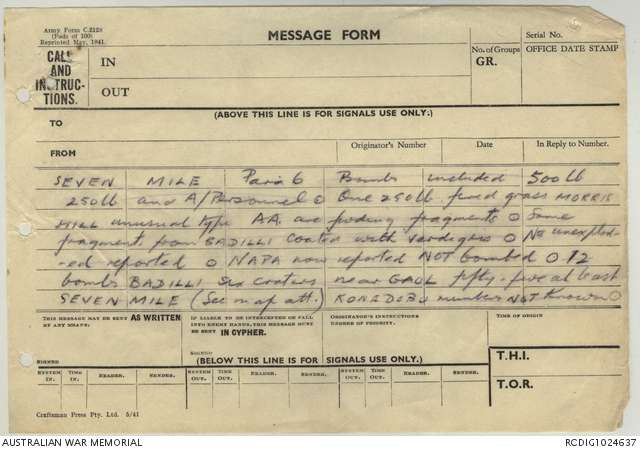 Army Form C.2128
(Pads of 100)
Reprinted May, 1941.
MESSAGE FORM
Serial No.
CALL
AND
INSTRUC-
TIONS.
IN
OUT
No. of Groups
GR.
OFFICE DATE STAMP
(ABOVE THIS LINE IS FOR SIGNALS USE ONLY:)
TO
FROM
Originator's Number
Date
In Reply to Number.
SEVEN MILE Para 6 Bombs included 500 lb
250 lb and A/Personnel O One 250 lb. found grass MORRIS
HILL unusual type A.A. are finding fragments O Some
fragment from BADILLI coated with verdegris O No unexplod-
ed reported O NAPA now reported NOT bombed O 12
bombs BADILLI Six craters near GAOL fifty-five at least
SEVEN MILE (See map att.) KONEDOBU number NOT Known O
THIS MESSAGE MAY BE SENT AS WRITTEN
BY ANY MEANS.
IF LIABLE TO BE INTERCEPTED OR FALL
INTO ENEMY HANDS, THIS MESSAGE MUST
BE SENT IN CYPHER.
ORIGINATOR'S INSTRUCTIONS
DEGREE OF PRIORITY.
TIME OF ORIGIN
SIGNED
SIGNED
(BELOW THIS LINE IS FOR SIGNALS USE ONLY.)
T.H.I.
T.O.R.
SYSTEM IN.
TIME IN.
READER.
SENDER.
SYSTEM OUT.
TIME OUT.
READER.
SENDER.
SYSTEM OUT.
TIME OUT.
READER.
SENDER.
Craftsman Press Pty. Ltd. 5/41
AUSTRALIAN WAR MEMORIAL
RCDIG1024637